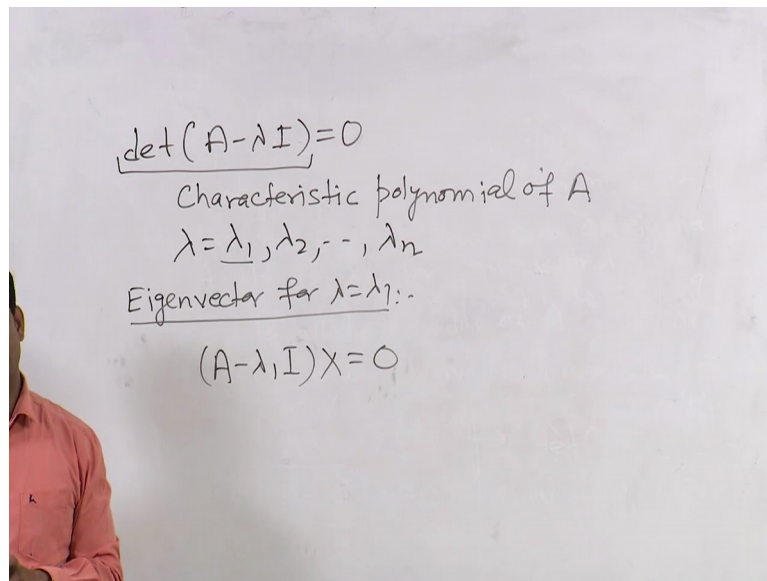 det(A-λI)=0
Characteristic polynomial of A
λ=λ₁,λ₂,--,λn
Eigenvector for λ=λ₁:-
(A-λ₁I)X=0